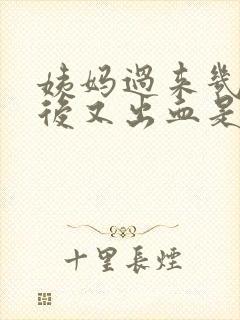 姨妈过来几
後又出血是
十里長煙